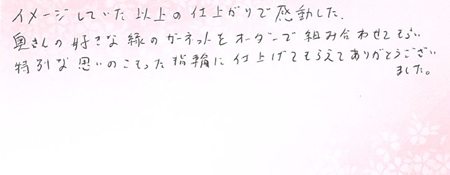 イメージしていた以上の仕上がりで感動した。
奥さんの好きな緑のガーネットをオーダーで組み合わせてもらい
特別な思いのこもった指輪に仕上げてもらえてありがとうござい
ました。